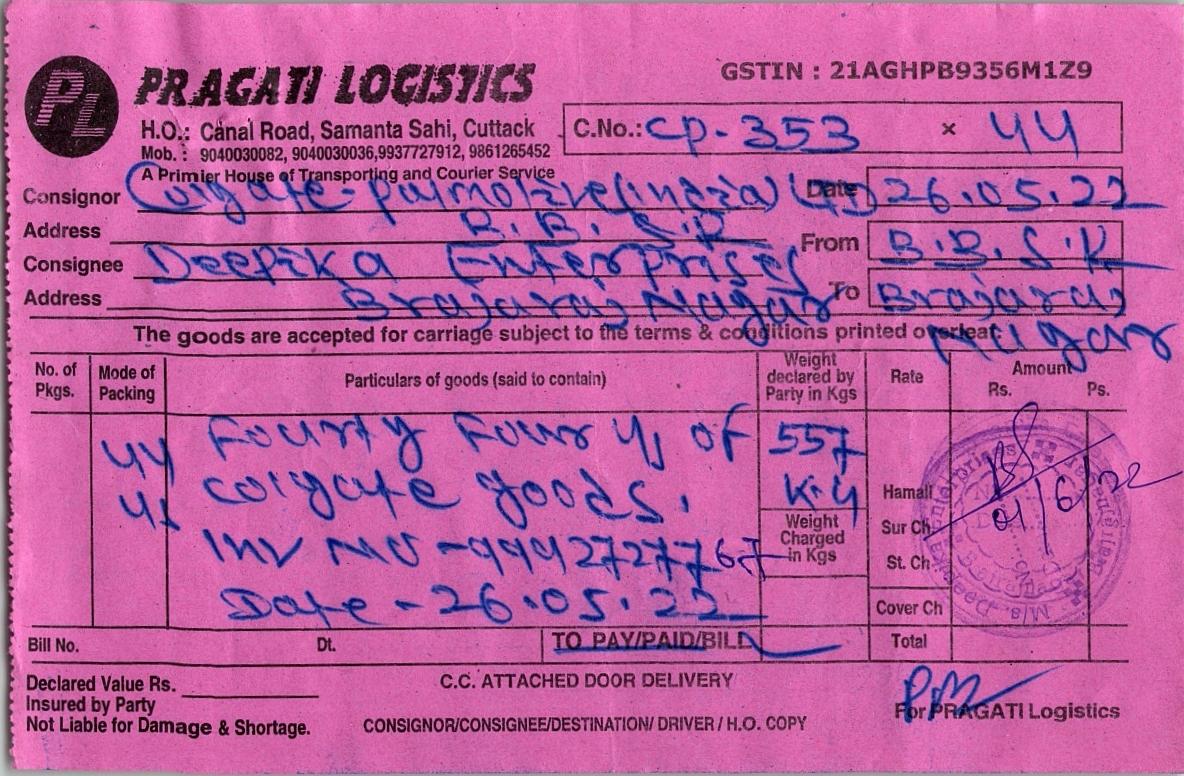 PL
PRAGATI LOGISTICS
GSTIN : 21AGHPB9356M1Z9
H.O.: Canal Road, Samanta Sahi, Cuttack
Mob. : 9040030082, 9040030036,9937727912, 9861265452
A Primier House of Transporting and Courier Service
C.No.: CP-353 × 44
Consignor Colgate-palmolive(india) Date 26.05.22
Address B.B.S.R From B.B.S.R
Consignee Deepika Enterprises
Address Brajaraj Nagar To Brajaraj Nagar
The goods are accepted for carriage subject to the terms & conditions printed overleaf
No. of Pkgs. Mode of Packing Particulars of goods (said to contain) Weight declared by Party in Kgs Rate Amount Rs. Ps.
44 Fourty Four of 557
colgate goods. K.g
Hamali 01/6/22
INV NO -9992727767
Weight Charged in Kgs
Sur Ch.
St. Ch.
Date - 26.05.22
Cover Ch
Bill No. Dt. TO PAY/PAID/BILL Total
Declared Value Rs. C.C. ATTACHED DOOR DELIVERY
Insured by Party
For PRAGATI Logistics
Not Liable for Damage & Shortage. CONSIGNOR/CONSIGNEE/DESTINATION/ DRIVER / H.O. COPY